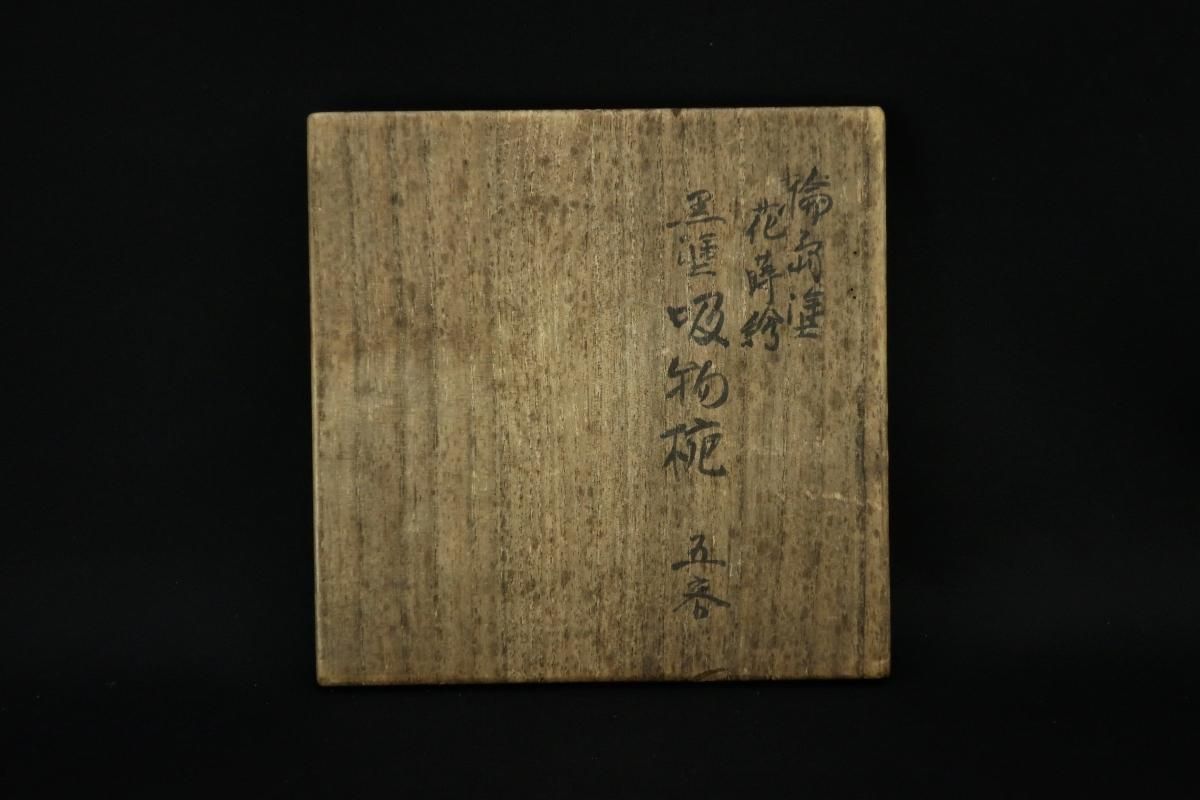 輪島塗
花蒔絵
黒塗吸物椀 五客